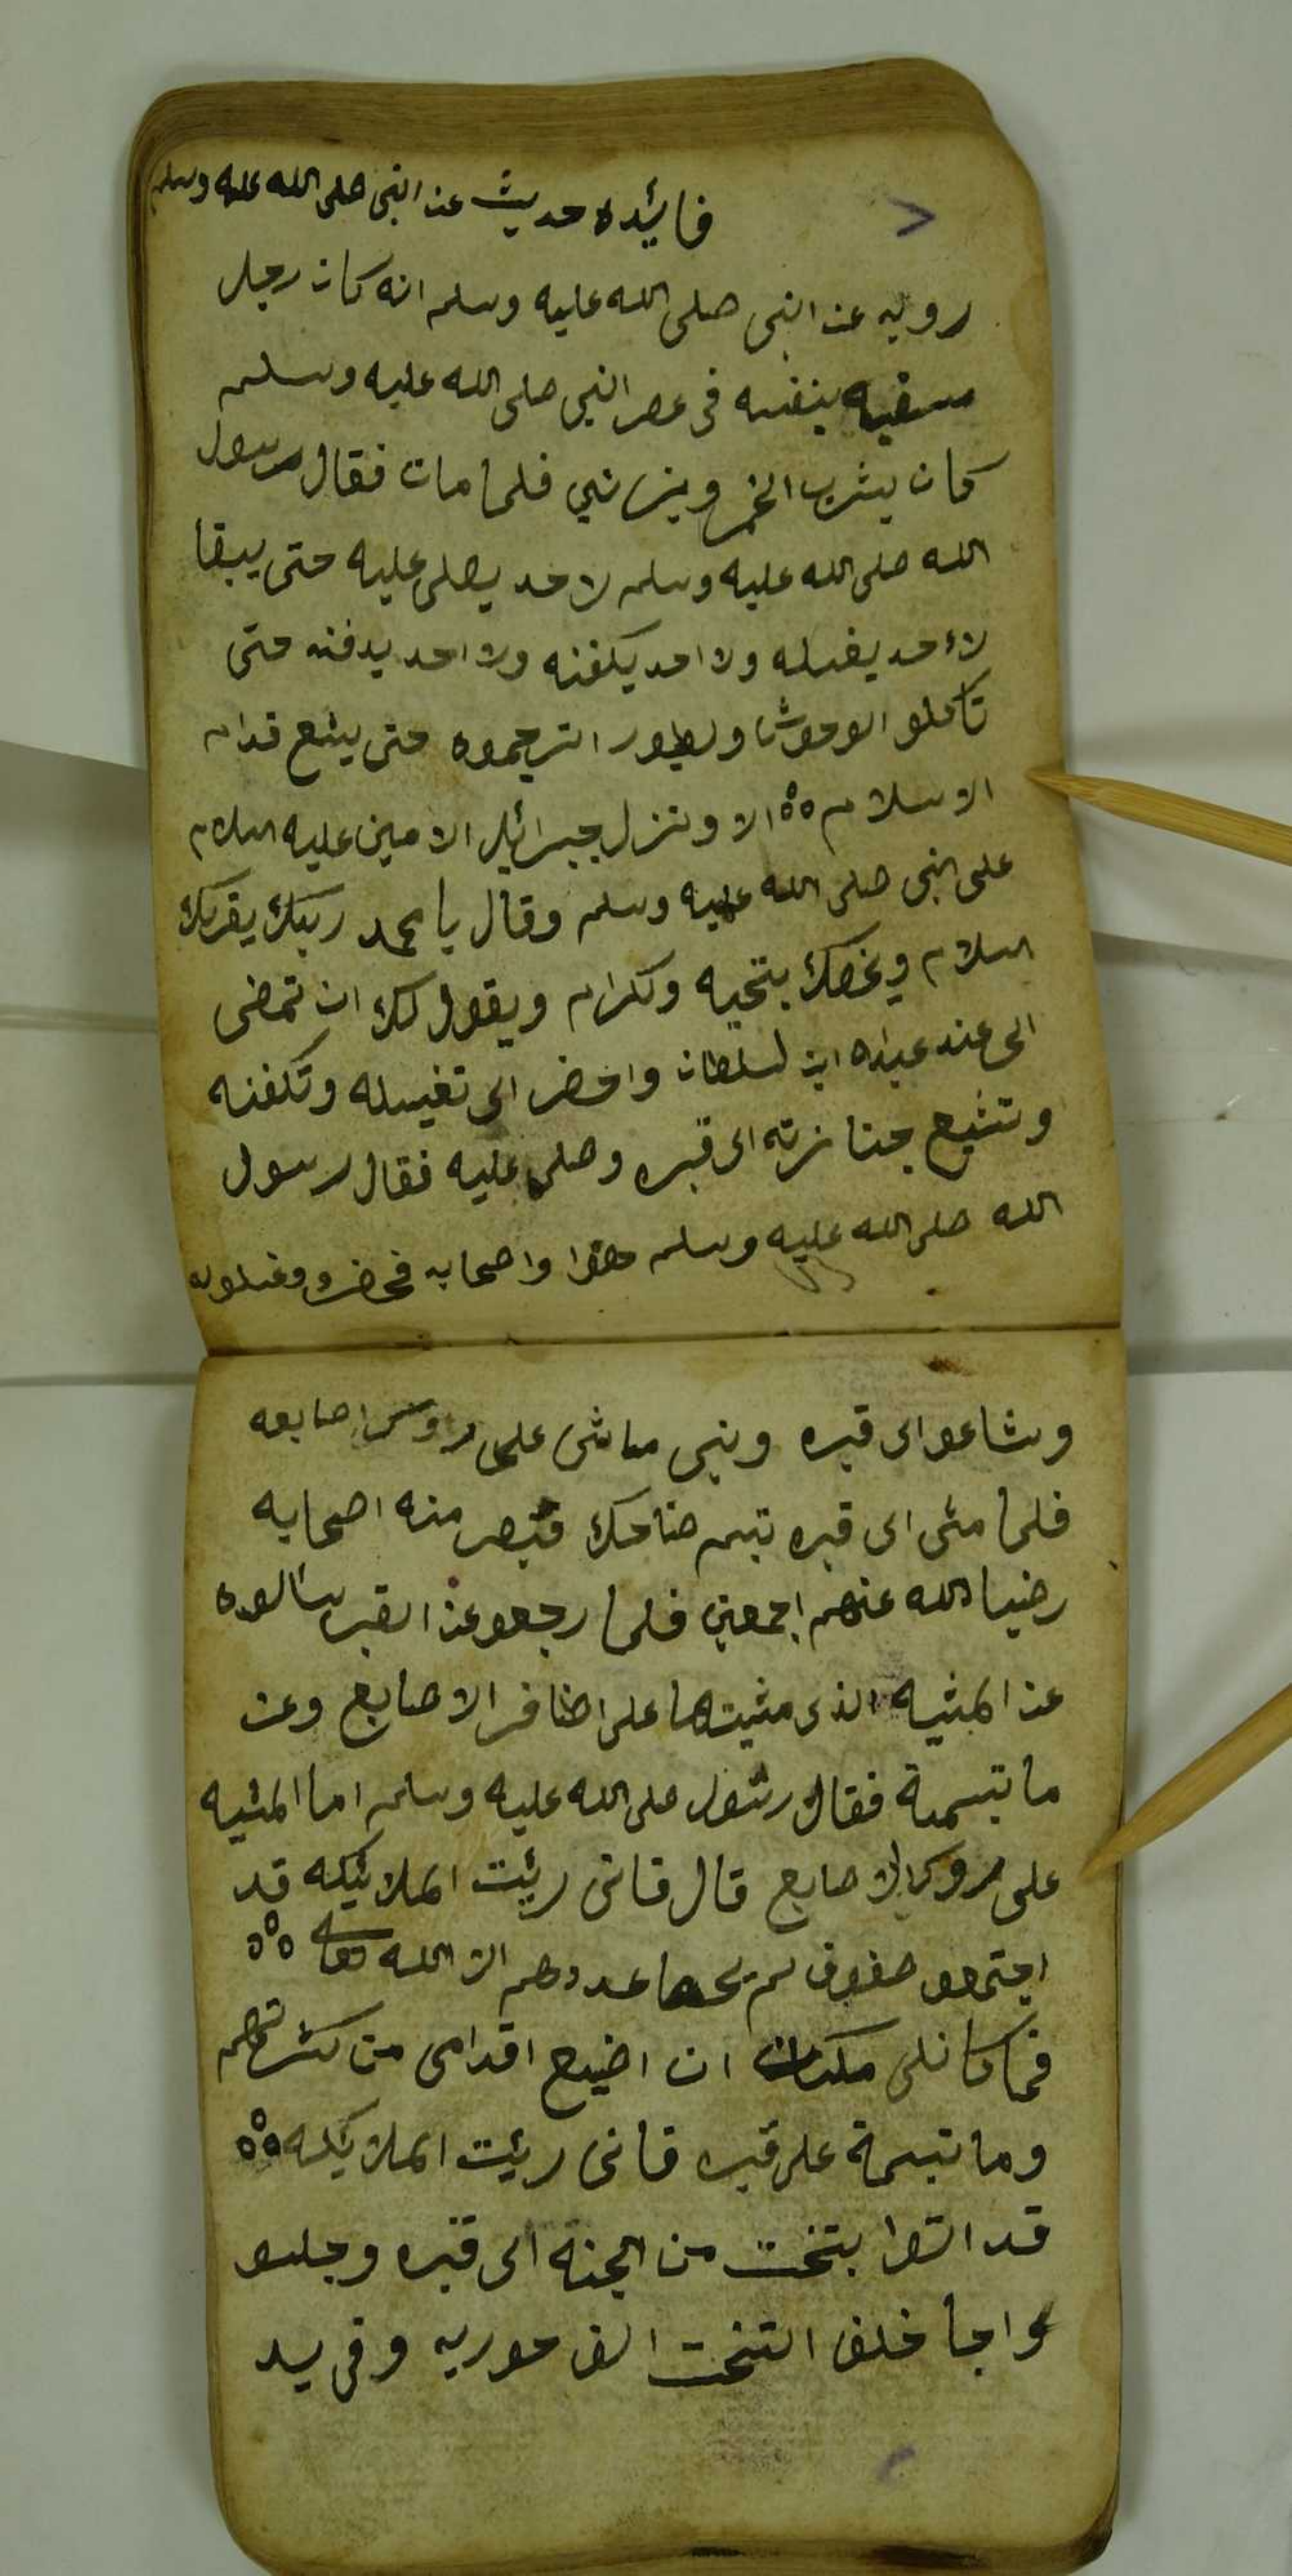 فايئده حديث عن النبي صلى الله عليه وسلم
رويه عن النبي صلى الله عليه وسلم انه كان رجل
سفيه بنفسه في عصر النبي صلى الله عليه وسلم
كان يشرب الخمر ويزنيي فلما مات فقال رسول
الله صلى الله عليه وسلم لاحد يصلى عليه حتى يبقا
لاءحد يغسله ولا احد يكفنه ولا احد يدفنه حتى
تاكلو الوحوش ولطيور الترجموه حتى يشع قدام
الاسلام الا ونزل جبرائيل الامين عليه السلام
على النبي صلى الله عليه وسلم وقال يا محمد ربك يقريك
السلام ويخصك بتحيه وكرام ويقول لك ان تمضى
الى عند عبدالله ابن لسلطان واحضر الى تغسيله وتكفنه
وتشيع جنازته الى قبره وصلى عليه فقال رسول
الله صلى الله عليه وسلم حقا واصحابه فحضرو وغسلوه
وشاعوا الى قبره ونبي ماشى على روس اصابعه
فلما مشى الى قبره تبسم ضاحك فتبصر منه اصحابه
رضيا الله عنهم اجمعين فلما رجعو عن القبر سالوه
عن المشيه الذى مشيتها على اضافر الاصابع وعن
ما تبسمة فقال رسول صلى الله عليه وسلم اما المشيه
على روس الاصابع قال فانى ريئت الملائيكه قد
اجتمعو صفوف لم يحصا عددهم الا الله تعالى
فما كانلى مكان ان اضيع اقدامى من كثرتهم
وما تبسمة على قبره فانى ريئت الملايكه
قد اتوا بتخت من الجنه الى قبره وجلسو
واجا خلف التخت الف حوريه وفى يد